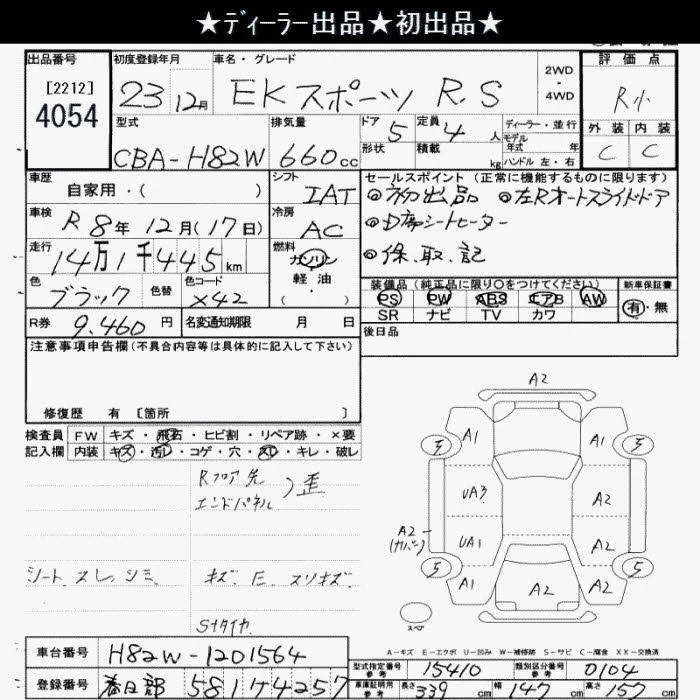 ★ディーラー出品★初出品★
出品番号 初度登録年月 車名・グレード 2WD・4WD 評価点
[2212]
4054
23 12月 EKスポーツ R.S R小
型式 排気量 ドア 形状 定員 積載 ディーラー・並行 モデル年式 年 ハンドル 左・右 外装 内装
CBA-H82W 660cc 5 4人 kg C C
車歴 自家用・( ) シフト IAT
セールスポイント (正常に機能するものに限ります)
◎初出品 ◎左Rオートスライドドア
◎D席シートヒーター
◎保.取.記
車検 R8年12月(17日) 冷房 AC
走行 14万1千445km 燃料 ガソリン 軽油 ・( )
色 ブラック 色替 色コード X42
装備品 (純正品に限り○をつけてください) 新車保証書
PS PW ABS エアB AW 有・無
SR ナビ TV カワ
R券 9,460円 名変通知期限 月 日
後日品
注意事項申告欄(不具合内容等は具体的に記入して下さい)
修復歴 有 [箇所 ]
検査員記入欄 FW キズ・飛石・ヒビ割・リペア跡・×要
内装 キズ・汚レ・コゲ・穴・スレ・キレ・破レ
Rフロア先
エンドパネル ) 歪
シート スレ.シミ キズ E スリキズ
Sタイヤ
A2
5 A1 A1 5
UA3 A2
A2 (カバー) UA1 A2
5 A1 A2 A2 5
A2
スペア
A-キズ E-エクボ U-凹み W-補修跡 S-サビ C-腐食 XX-交換済
車台番号 H82W-1201564
型式指定番号 参考 15410 類別区分番号 参考 0104
登録番号 春日部 581 4257
車庫証明用 参考 長さ 339cm 幅 147cm 高さ 157cm